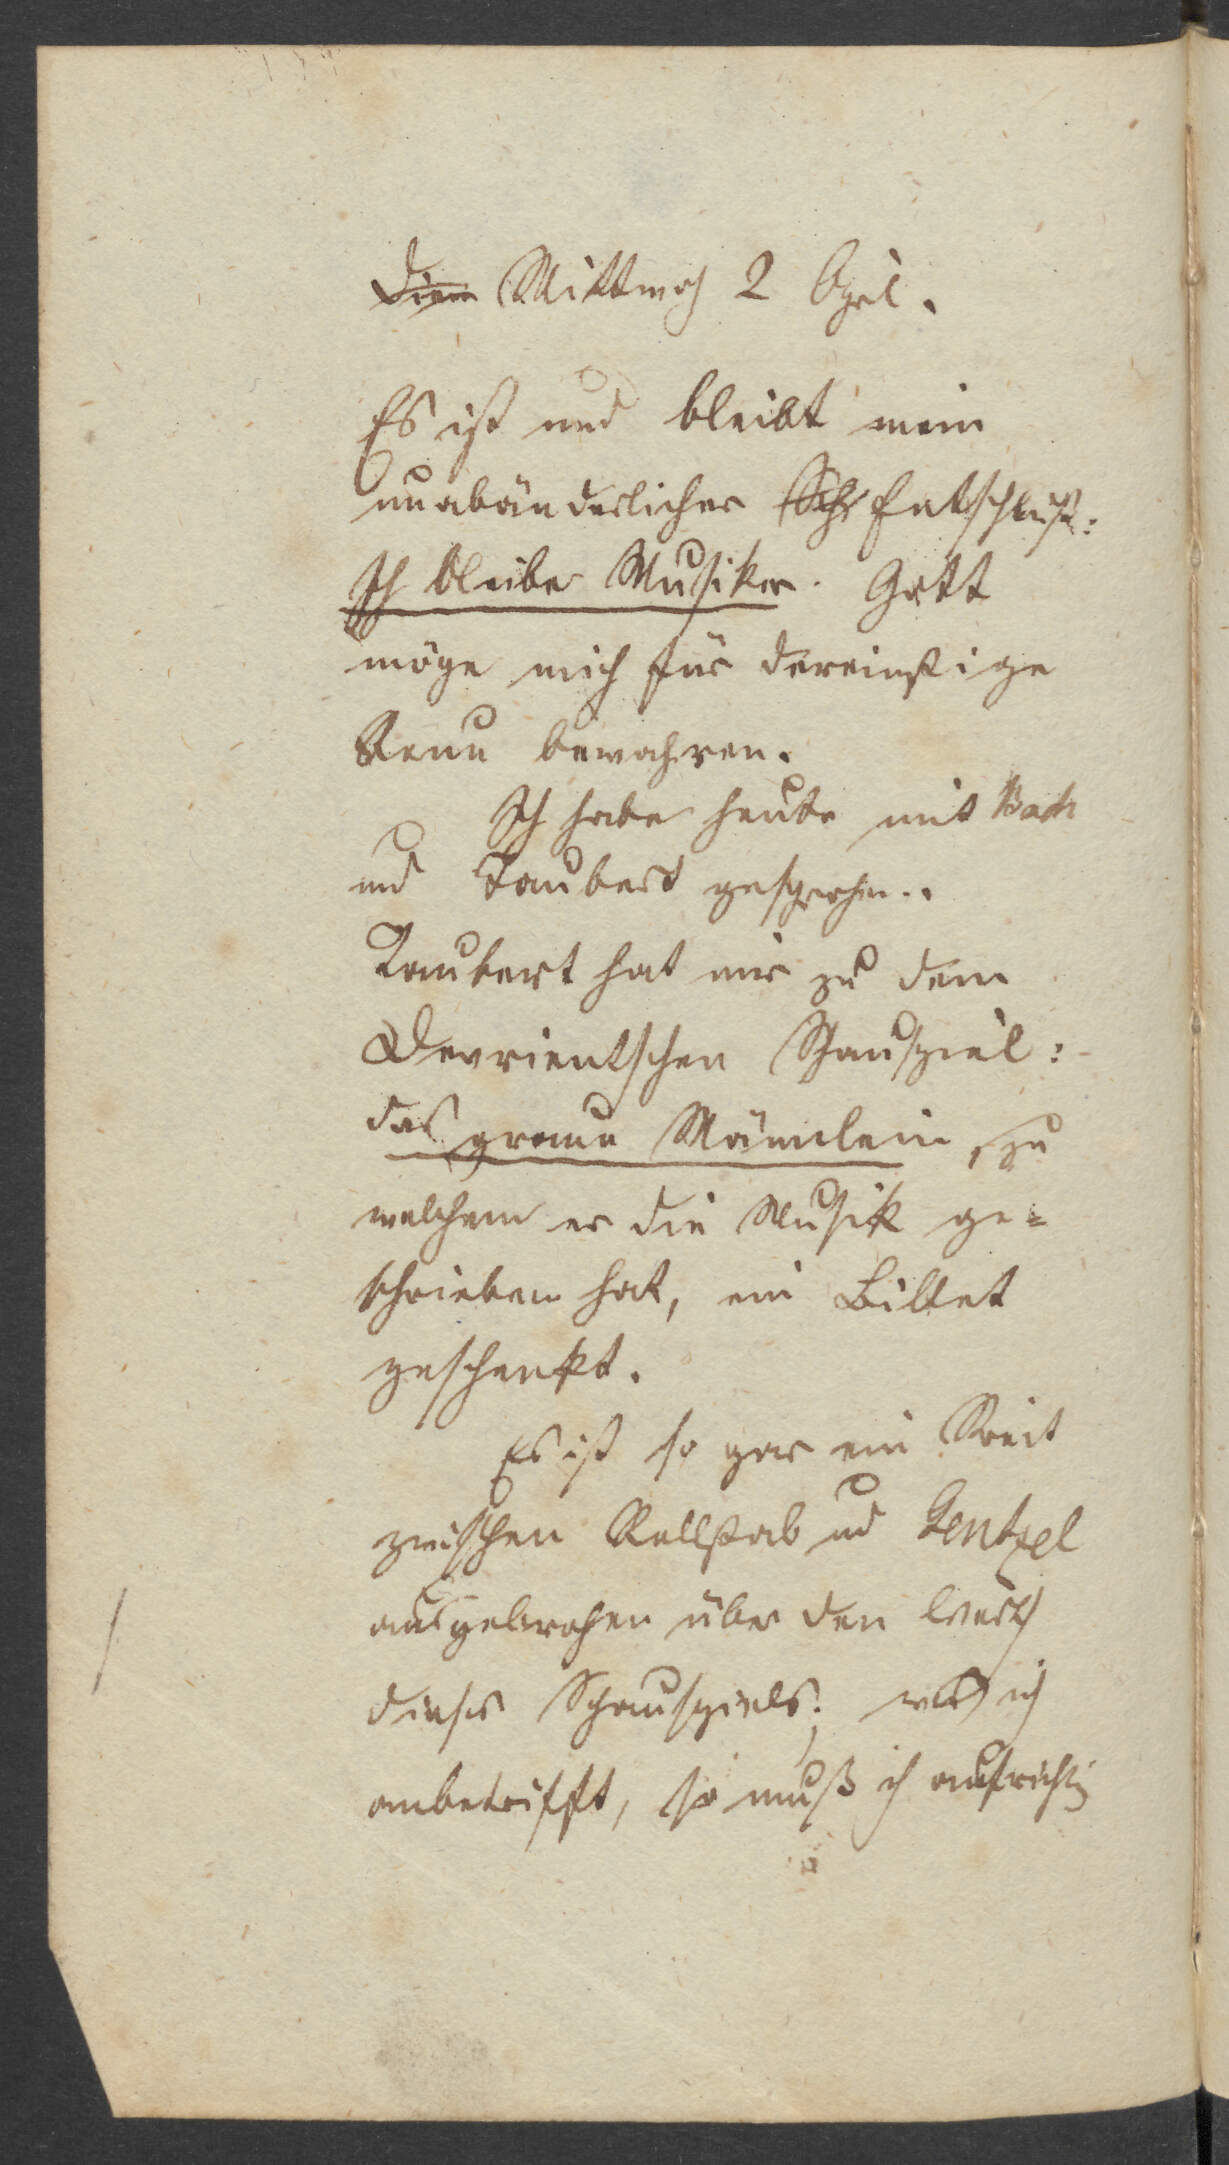 Dien Mittwoch 2 April.
Es ist und bleibt mein
unabänderlicher Sch Entschluß:
Ich bleibe Musiker. Gott
möge mich für dereinstige
Reue bewahren.
Ich habe heute mit Bach
und Taubert gesprochen.
Taubert hat mir zu dem
Devrientschen Schauspiel:
das graue Männlein, zu
welchem er die Musik ge=
schrieben hat, ein Billet
geschenkt.
Es ist so gar ein Streit
zwischen Rellstab und Gentzel
ausgebrochen über den Werth
dieses Schauspiels; was ich
anbetrifft, so muß ich aufrichtig